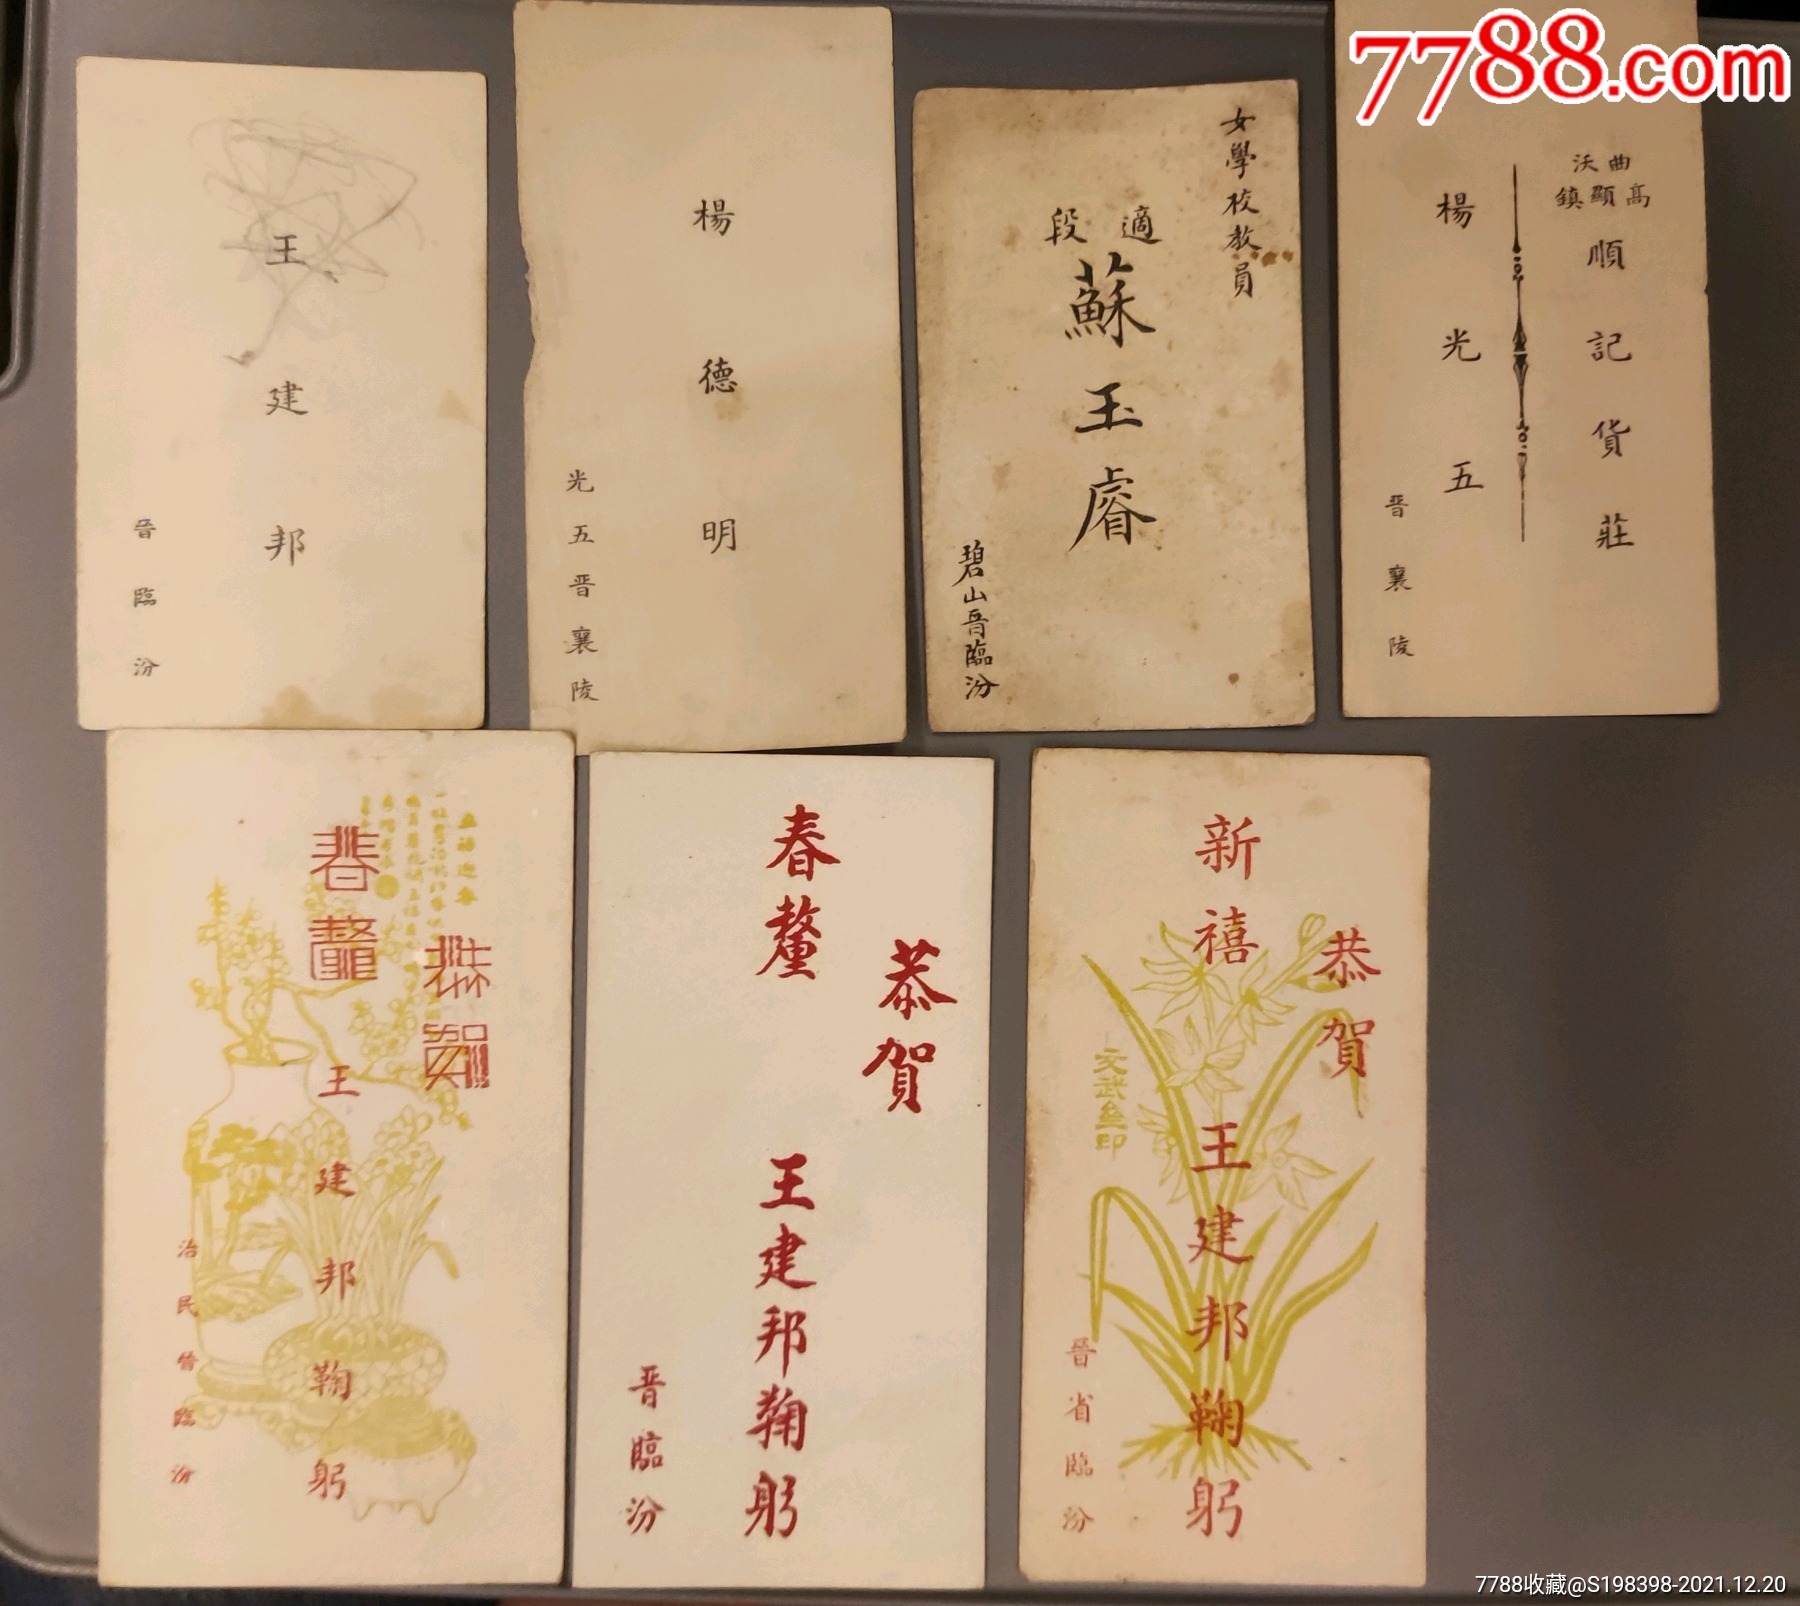 7788.com
王建邦
晉臨汾
楊德明
光五晋襄陵
女學校教員
適段
蘇玉睿
碧山晋臨汾
曲沃
高顯鎮
順記貨莊
楊光五
晋襄陵
恭賀
春釐
王建邦鞠躬
治民晉臨汾
恭賀
春釐
王建邦鞠躬
晋臨汾
恭賀
新禧
王建邦鞠躬
晉省臨汾
7788收藏@S198398-2021.12.20